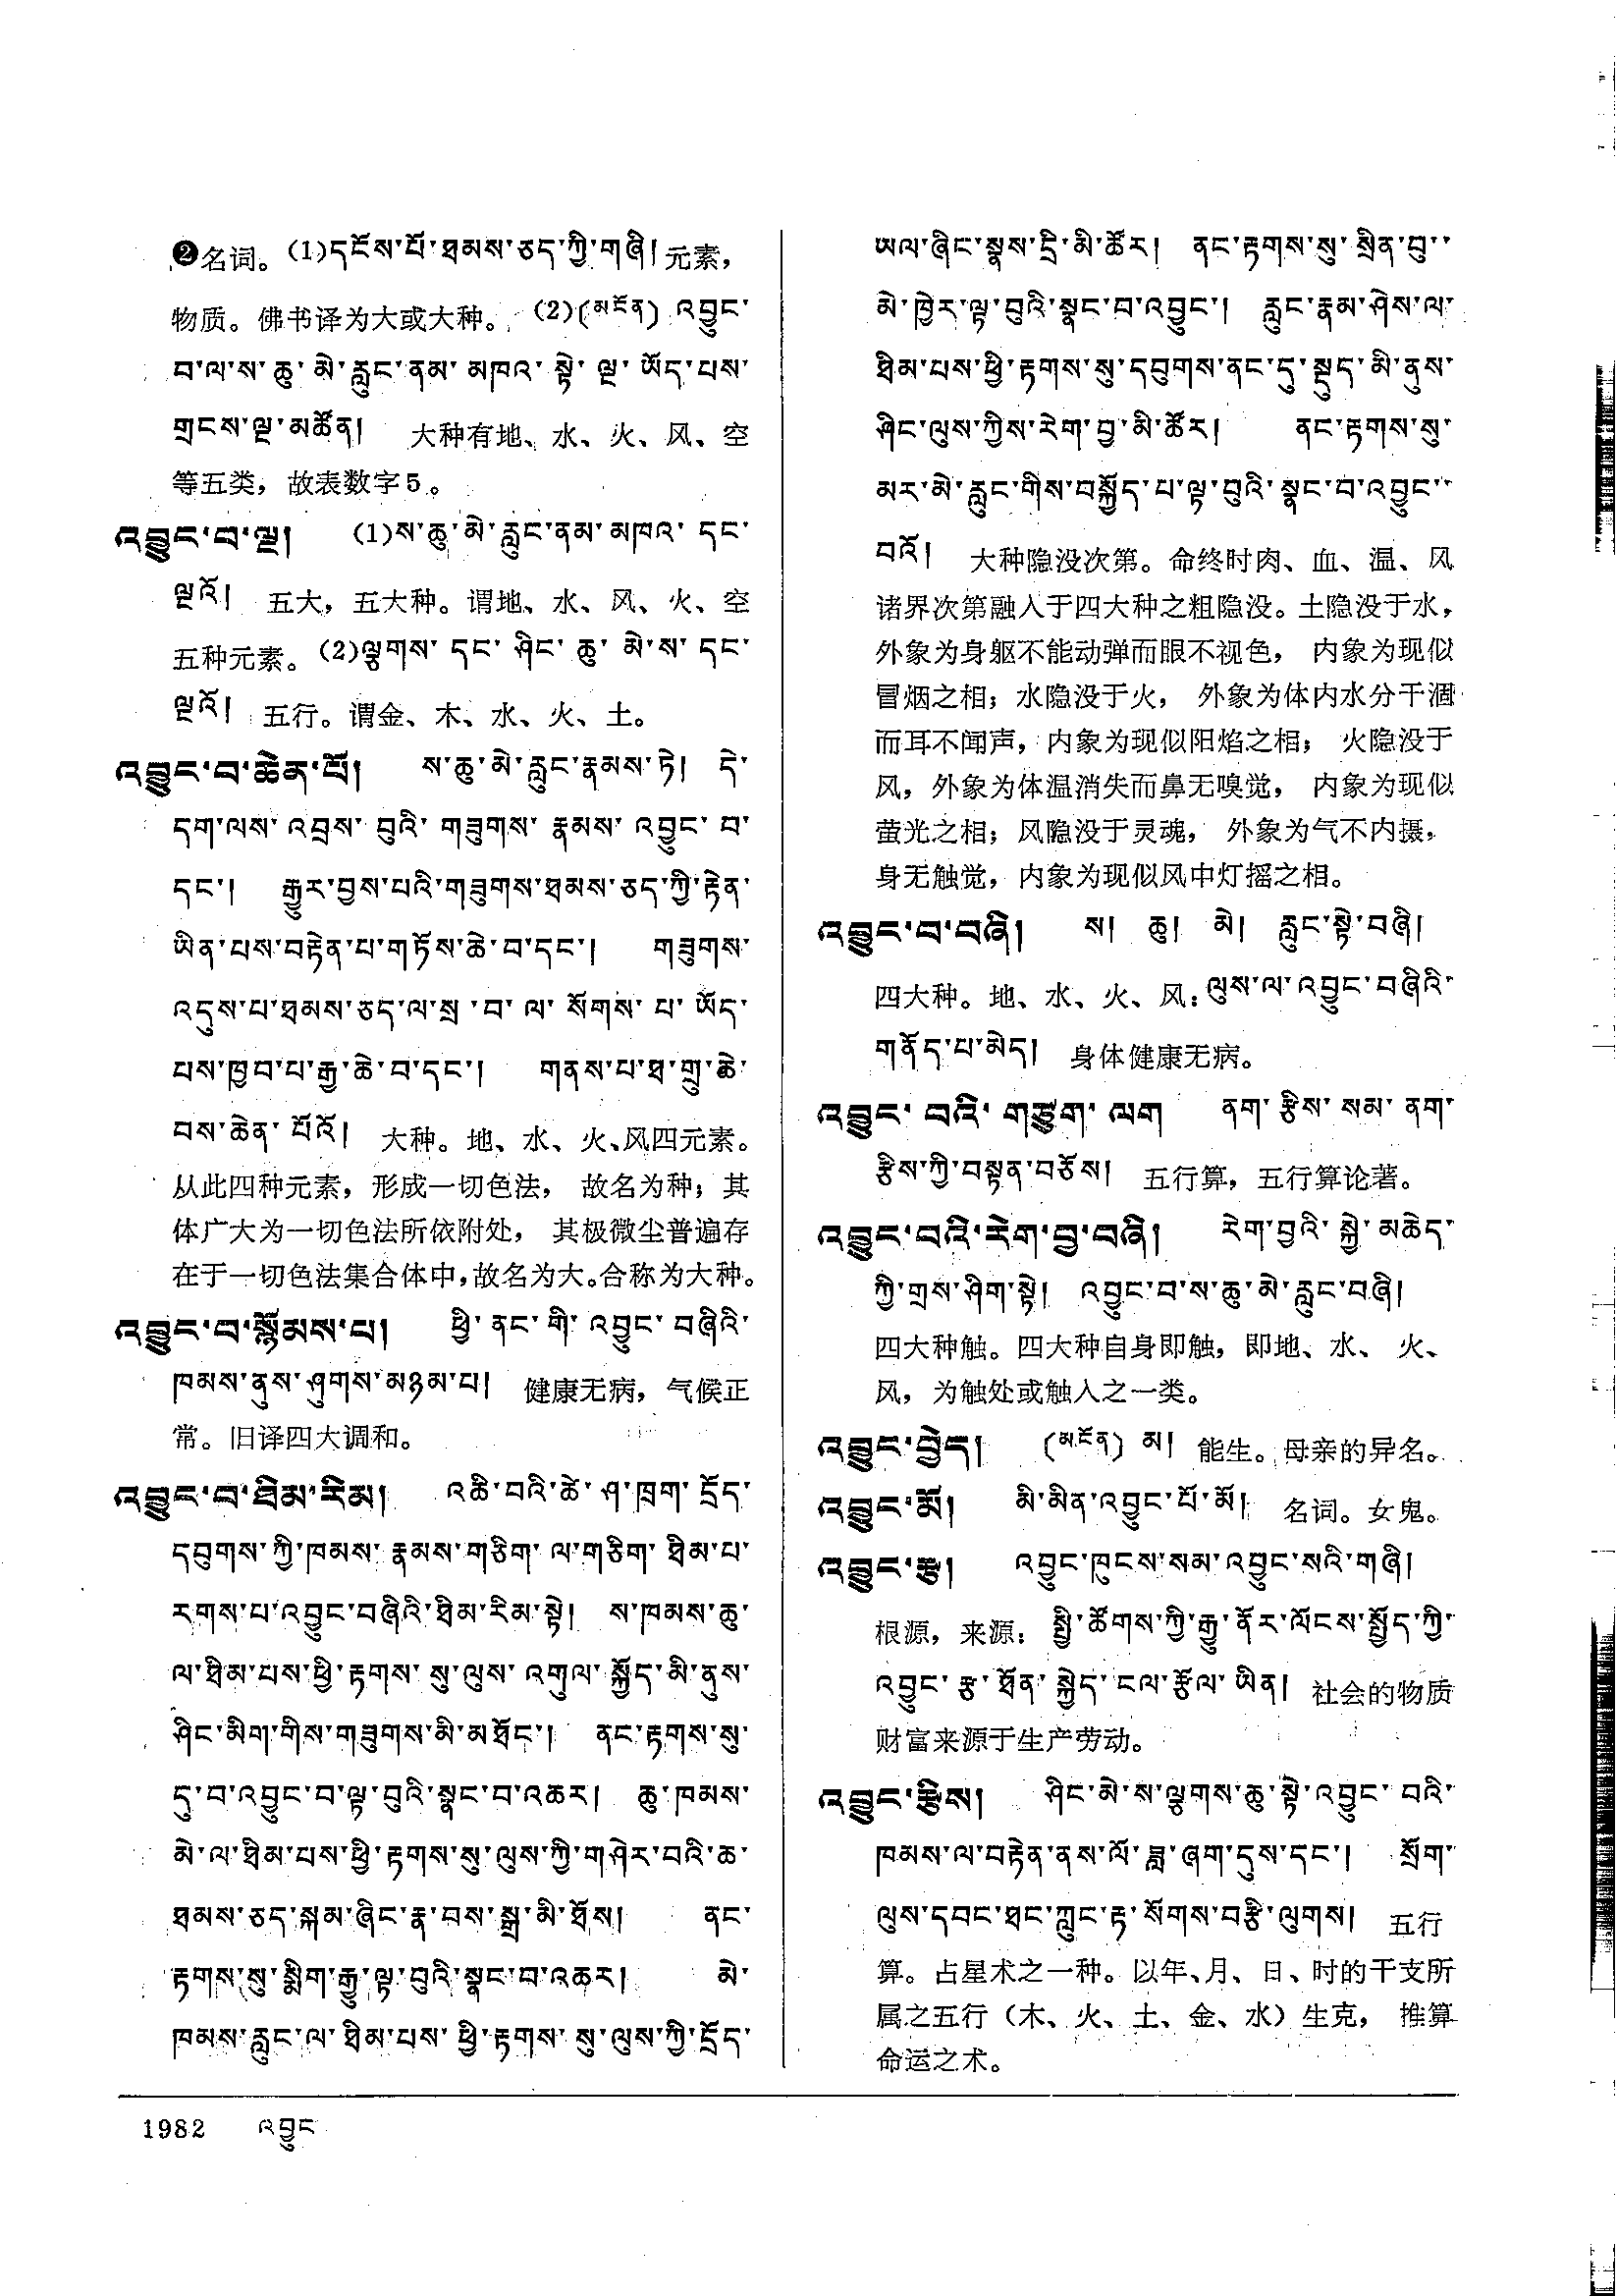 ❷名词。(1)དངོས་པོ་ཐམས་ཅད་ཀྱི་གཞི། 元素，
物质。佛书译为大或大种。(2)(མངོན) འབྱུང་
བ་ལ་ས་ཆུ་མེ་རླུང་ནམ་མཁའ་སྟེ་ལྔ་ཡོད་པས་
གྲངས་ལྔ་མཚོན། 大种有地、水、火、风、空
等五类，故表数字5。
འབྱུང་བ་ལྔ། (1)ས་ཆུ་མེ་རླུང་ནམ་མཁའ་དང་
ལྔའོ། 五大，五大种。谓地、水、风、火、空
五种元素。(2)ལྕགས་དང་ཤིང་ཆུ་མེ་ས་དང་
ལྔའོ། 五行。谓金、木、水、火、土。
འབྱུང་བ་ཆེན་པོ། ས་ཆུ་མེ་རླུང་རྣམས་ཏེ། དེ་
དག་ལས་འབྲས་བུའི་གཟུགས་རྣམས་འབྱུང་བ་
དང་། རྒྱུར་བྱས་པའི་གཟུགས་ཐམས་ཅད་ཀྱི་རྟེན་
ཡིན་པས་བརྟེན་པ་གཏོས་ཆེ་བ་དང་། གཟུགས་
འདུས་པ་ཐམས་ཅད་ལ་སྲ་བ་ལ་སོགས་པ་ཡོད་
པས་ཁྱབ་པ་རྒྱ་ཆེ་བ་དང་། གནས་པ་ཐ་གྲུ་ཆེ་
བས་ཆེན་པོའོ། 大种。地、水、火、风四元素。
从此四种元素，形成一切色法，故名为种；其
体广大为一切色法所依附处，其极微尘普遍存
在于一切色法集合体中，故名为大。合称为大种。
འབྱུང་བ་སྙོམས་པ། ཕྱི་ནང་གི་འབྱུང་བཞིའི་
ཁམས་ནུས་ཤུགས་མཉམ་པ། 健康无病，气候正
常。旧译四大调和。
འབྱུང་བ་ཐིམ་རིམ། འཆི་བའི་ཚེ་ཤ་ཁྲག་དྲོད་
དབུགས་ཀྱི་ཁམས་རྣམས་གཅིག་ལ་གཅིག་ཐིམ་པ་
རགས་པ་འབྱུང་བཞིའི་ཐིམ་རིམ་སྟེ། ས་ཁམས་ཆུ་
ལ་ཐིམ་པས་ཕྱི་རྟགས་སུ་ལུས་འགུལ་སྐྱོད་མི་ནུས་
ཤིང་མིག་གིས་གཟུགས་མི་མཐོང་། ནང་རྟགས་སུ་
དུ་བ་འབྱུང་བ་ལྟ་བུའི་སྣང་བ་འཆར། ཆུ་ཁམས་
མེ་ལ་ཐིམ་པས་ཕྱི་རྟགས་སུ་ལུས་ཀྱི་གཤེར་བའི་ཆ་
ཐམས་ཅད་སྐམ་ཞིང་རྣ་བས་སྒྲ་མི་ཐོས། ནང་
རྟགས་སུ་སྨིག་རྒྱུ་ལྟ་བུའི་སྣང་བ་འཆར། མེ་
ཁམས་རླུང་ལ་ཐིམ་པས་ཕྱི་རྟགས་སུ་ལུས་ཀྱི་དྲོད་
ཡལ་ཞིང་སྣས་དྲི་མི་ཚོར། ནང་རྟགས་སུ་སྲིན་བུ་
མེ་ཁྱེར་ལྟ་བུའི་སྣང་བ་འབྱུང་། རླུང་རྣམ་ཤེས་ལ་
ཐིམ་པས་ཕྱི་རྟགས་སུ་དབུགས་ནང་དུ་སྡུད་མི་ནུས་
ཤིང་ལུས་ཀྱིས་རེག་བྱ་མི་ཚོར། ནང་རྟགས་སུ་
མར་མེ་རླུང་གིས་བསྐྱོད་པ་ལྟ་བུའི་སྣང་བ་འབྱུང་
བའོ། 大种隐没次第。命终时肉、血、温、风
诸界次第融入于四大种之粗隐没。土隐没于水，
外象为身躯不能动弹而眼不视色，内象为现似
冒烟之相；水隐没于火，外象为体内水分干涸
而耳不闻声，内象为现似阳焰之相；火隐没于
风，外象为体温消失而鼻无嗅觉，内象为现似
萤光之相；风隐没于灵魂，外象为气不内摄，
身无触觉，内象为现似风中灯摇之相。
འབྱུང་བ་བཞི། ས། ཆུ། མེ། རླུང་སྟེ་བཞི།
四大种。地、水、火、风：ལུས་ལ་འབྱུང་བཞིའི་
གནོད་པ་མེད། 身体健康无病。
འབྱུང་བའི་གཙུག་ལག ནག་རྩིས་སམ་ནག་
རྩིས་ཀྱི་བསྟན་བཅོས། 五行算，五行算论著。
འབྱུང་བའི་རེག་བྱ་བཞི། རེག་བྱའི་སྐྱེ་མཆེད་
ཀྱི་གྲས་ཤིག་སྟེ། འབྱུང་བ་ས་ཆུ་མེ་རླུང་བཞི།
四大种触。四大种自身即触，即地、水、火、
风，为触处或触入之一类。
འབྱུང་བྱེད། (མངོན) མ། 能生。母亲的异名。
འབྱུང་མོ། མི་མིན་འབྱུང་པོ་མོ། 名词。女鬼。
འབྱུང་རྩ། འབྱུང་ཁུངས་སམ་འབྱུང་སའི་གཞི།
根源，来源：སྤྱི་ཚོགས་ཀྱི་རྒྱུ་ནོར་ལོངས་སྤྱོད་ཀྱི་
འབྱུང་རྩ་ཐོན་སྐྱེད་ངལ་རྩོལ་ཡིན། 社会的物质
财富来源于生产劳动。
འབྱུང་རྩིས། ཤིང་མེ་ས་ལྕགས་ཆུ་སྟེ་འབྱུང་བའི་
ཁམས་ལ་བརྟེན་ནས་ལོ་ཟླ་ཞག་དུས་དང་། སྲོག་
ལུས་དབང་ཐང་ཀླུང་རྟ་སོགས་བརྩི་ལུགས། 五行
算。占星术之一种。以年、月、日、时的干支所
属之五行（木、火、土、金、水）生克，推算
命运之术。
1982 འབྱུང